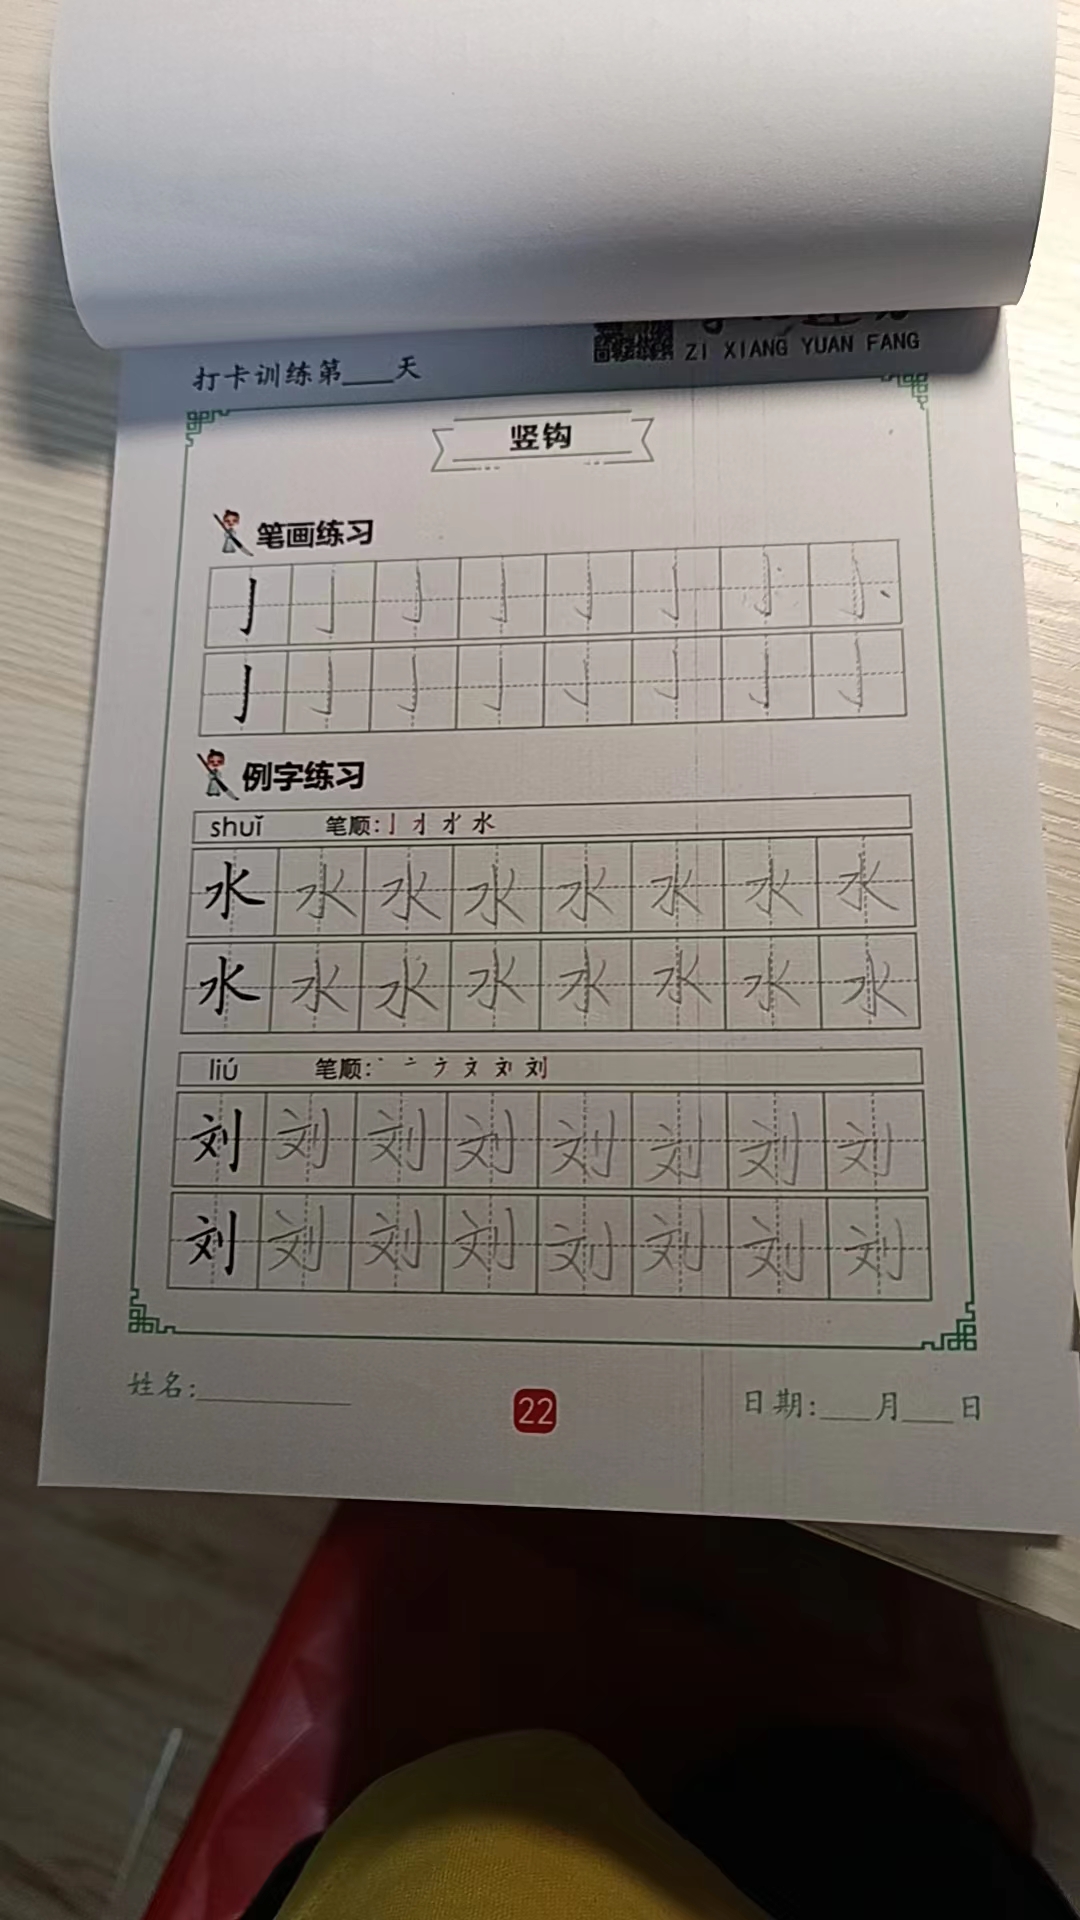 ZI XIANG YUAN FANG
打卡训练第___天
竖钩
笔画练习
亅亅亅亅亅亅亅亅
亅亅亅亅亅亅亅亅
例字练习
shuǐ 笔顺:水
水水水水水水水水
水水水水水水水水
liú 笔顺:丶亠ナ文刘刘
刘刘刘刘刘刘刘刘
刘刘刘刘刘刘刘刘
姓名:________
22
日期:___月___日